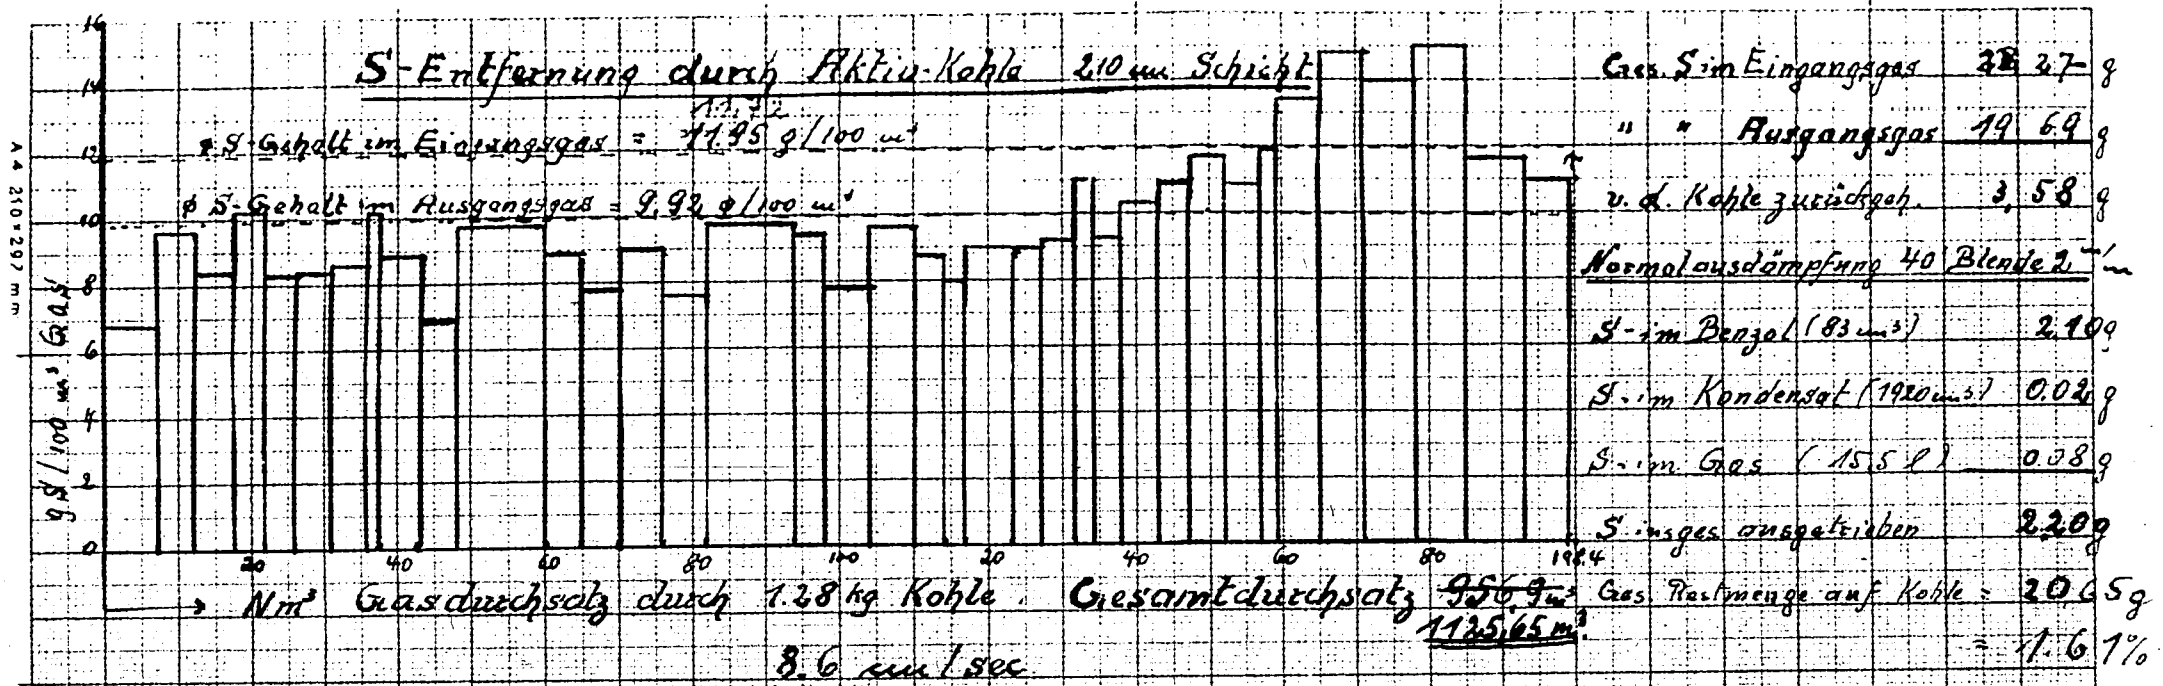 S-Entfernung durch Aktiv-Kohle 210 mm Schicht
11,72
ø S-Gehalt im Eingangsgas = 11.95 g/100 m³
ø S-Gehalt im Ausgangsgas = 9,92 g/100 m³
A4 210×297 mm
g S/100 m³ Gas
16
14
12
10
8
6
4
2
0
20 40 60 80 100 20 40 60 80 198.4
→ Nm³ Gasdurchsatz durch 1.28 kg Kohle. Gesamtdurchsatz 956,9 m³
1125,65 m³
8.6 cm/sec
Ges. S im Eingangsgas 27 g
" " Ausgangsgas 19 69 g
v. d. Kohle zurückgeh. 3,58 g
Normalausdämpfung 40' Blende 2 m/m
S-im Benzol (83 cm³) 2.10g
S-im Kondensat (1920 cm³) 0.02 g
S-im Gas (15,5 l) 0.08 g
S insges ausgetrieben 2.20g
Ges. Restmenge auf Kohle = 20,65g
= 1.61%